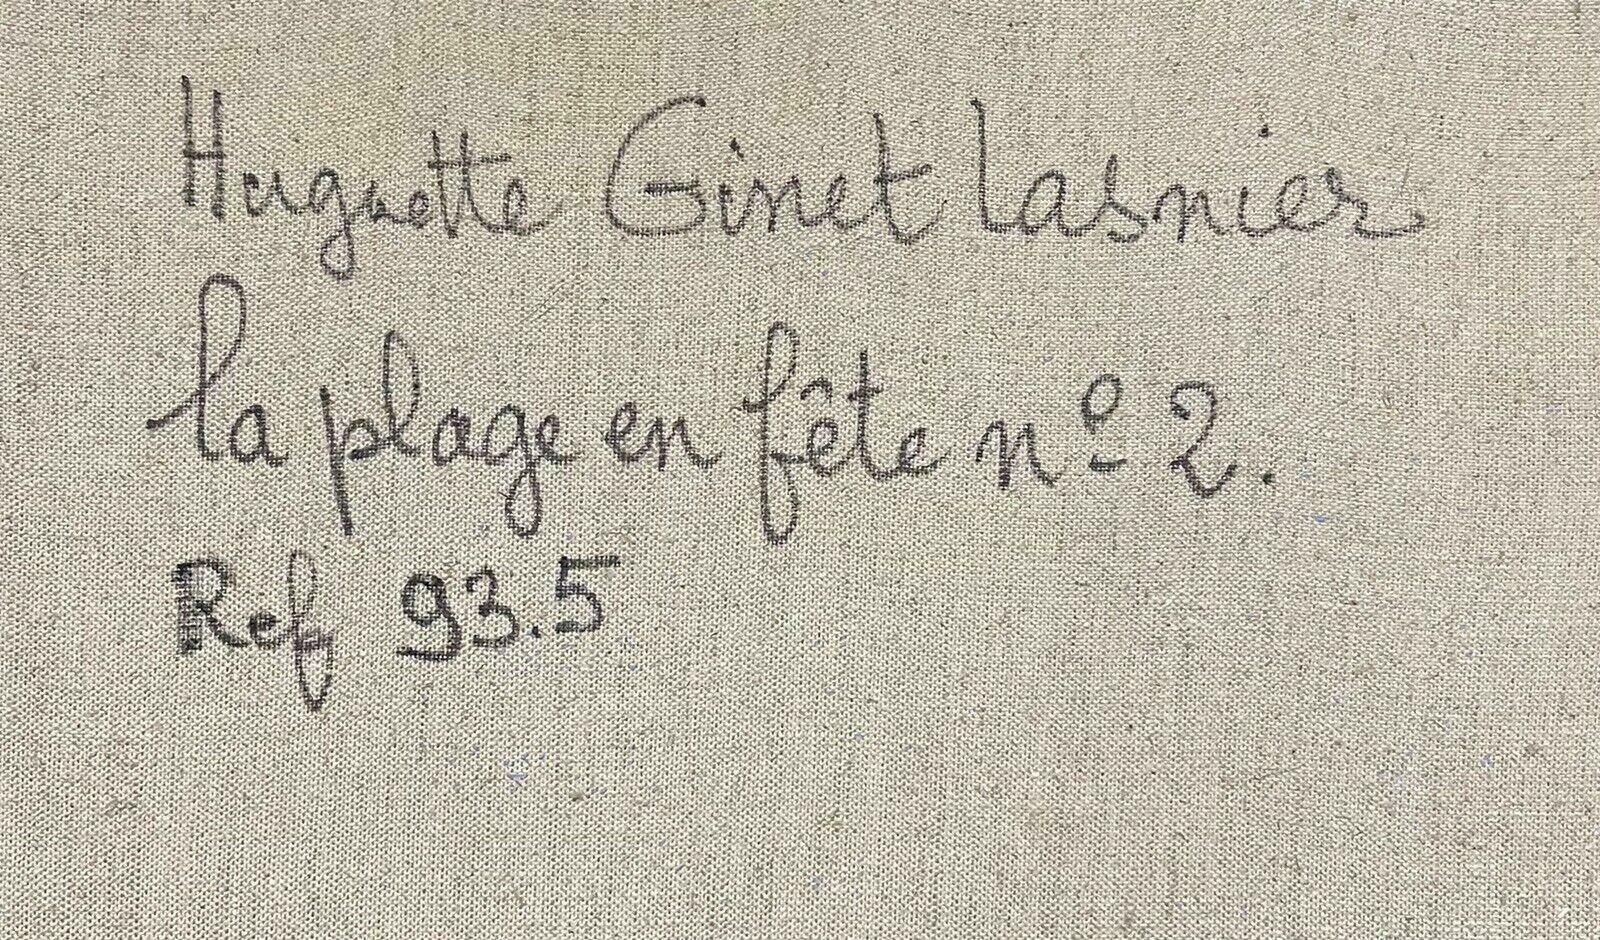 Huguette Ginet Lasnier
la plage en fête nº 2.
Ref 93.5